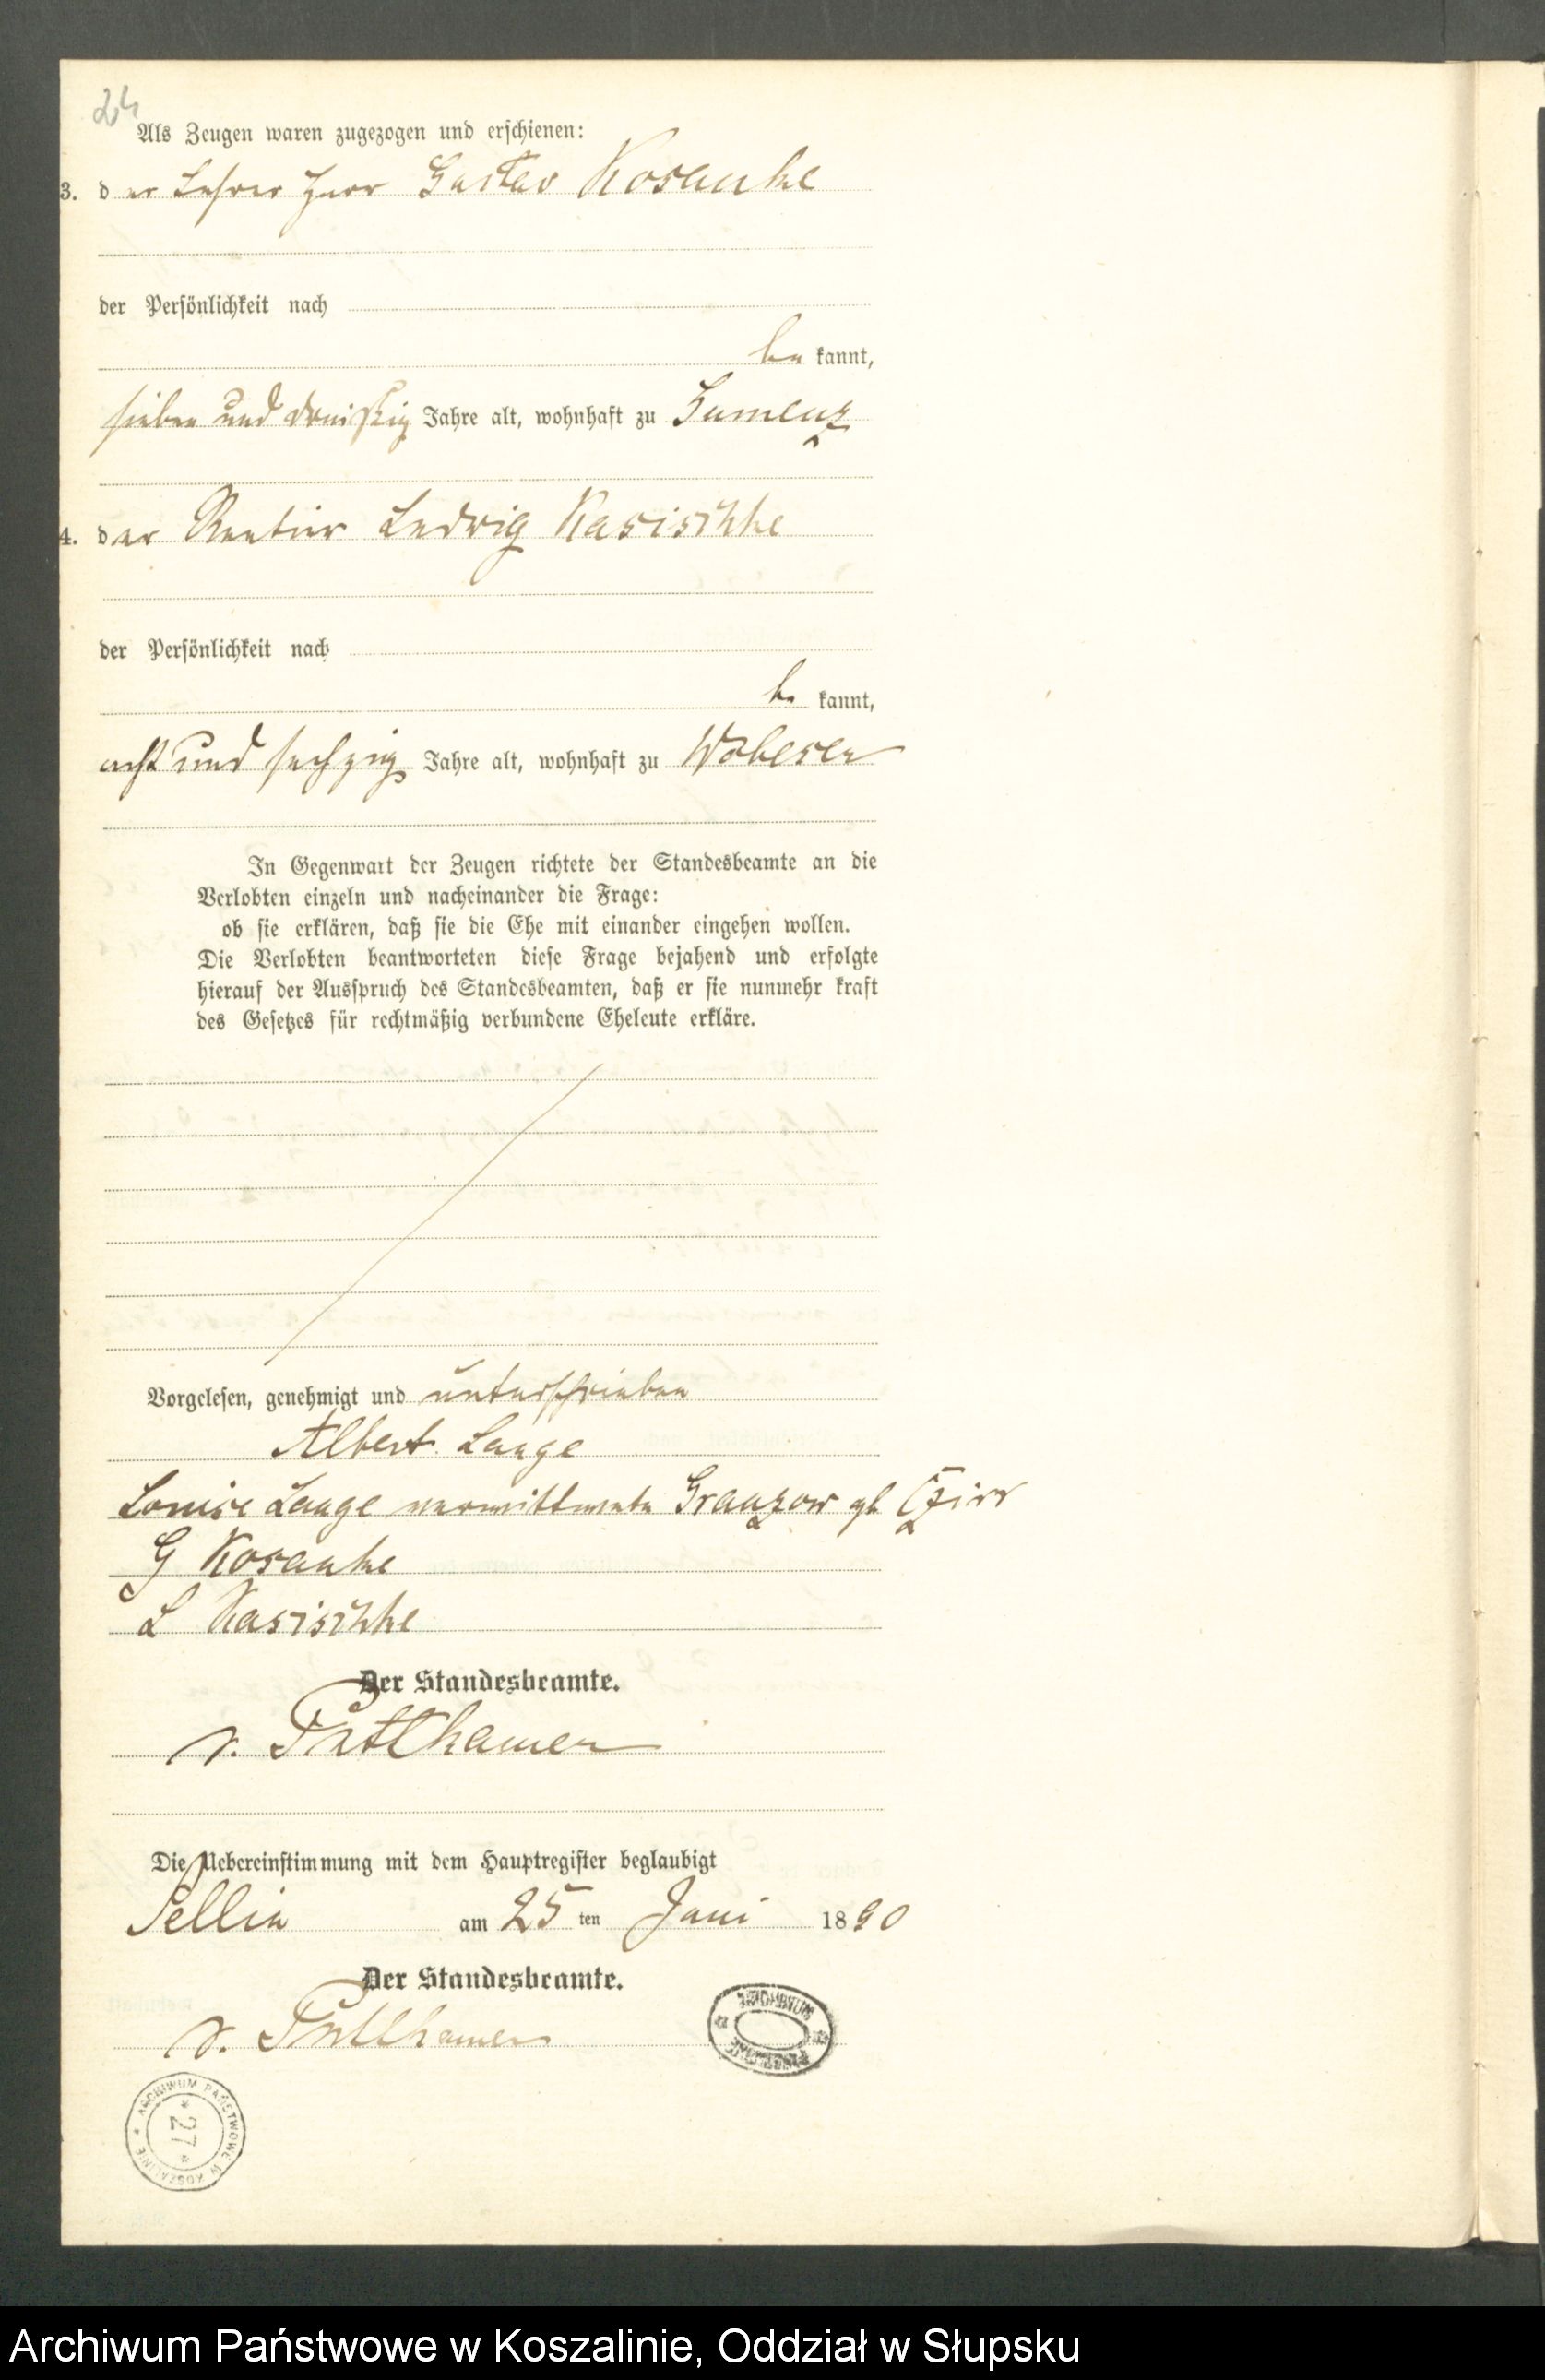 24
Als Zeugen waren zugezogen und erschienen:
3. der Lehrer Herr Gustav Kosanke
der Persönlichkeit nach
be kannt,
sieben und dreißig Jahre alt, wohnhaft zu Gumenz
4. der Rentier Ludwig Kasischke
der Persönlichkeit nach
be kannt,
acht und sechzig Jahre alt, wohnhaft zu Wobeser
In Gegenwart der Zeugen richtete der Standesbeamte an die
Verlobten einzeln und nacheinander die Frage:
ob sie erklären, daß sie die Ehe mit einander eingehen wollen.
Die Verlobten beantworteten diese Frage bejahend und erfolgte
hierauf der Ausspruch des Standesbeamten, daß er sie nunmehr kraft
des Gesetzes für rechtmäßig verbundene Eheleute erkläre.
Vorgelesen, genehmigt und unterschrieben
Albert Lange
Louise Lange verwittwete Granzow gb
G Kosanke
L Kasischke
Der Standesbeamte.
v. Puttkamer
Die Uebereinstimmung mit dem Hauptregister beglaubigt
Sellin am 25 ten Juni 1890
Der Standesbeamte.
v. Puttkamer
ARCHIWUM
ARCHIWUM PAŃSTWOWE W KOSZALINIE
* 27 *
Archiwum Państwowe w Koszalinie, Oddział w Słupsku